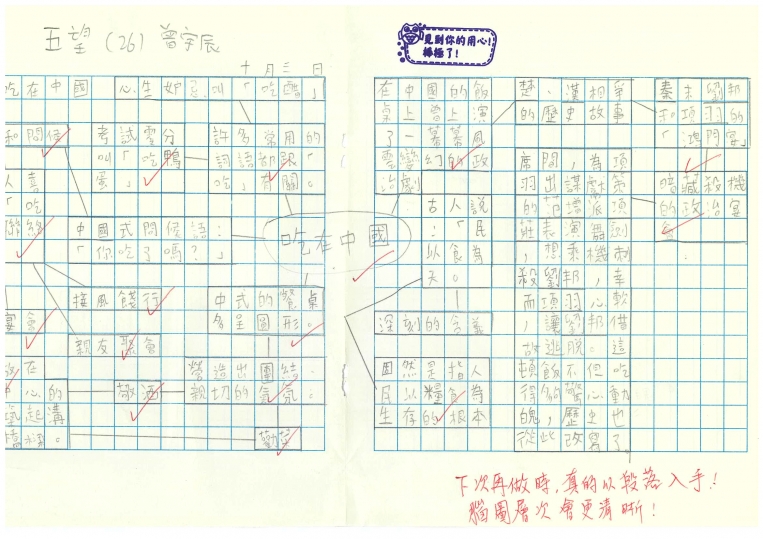 五望 (26) 曾宇辰
見到你的用心!
棒極了!
十月三日
吃在中國
秦末劉邦
和項羽的
「鴻門宴」
暗藏殺機
的政治宴
會
楚、漢相爭
的歷史故事
席間,為項
羽出謀獻策
的范增派項
莊表演舞劍
,想乘機刺
殺劉邦,幸
而項羽心軟
,讓劉邦借
故逃脫。這
頓飯不但吃
得夠驚心動
魄,歷史也
從此改寫了。
在中國的飯
桌上曾上演
了一幕幕風
雲變幻的政
治劇
古人說
:「民
以食為
天。」
深刻的含義
固然是指人
民以糧食為
生存的根本
許多常用的
詞語都跟「
吃」有關。
心生妒忌叫「吃醋」
考試零分
叫「吃鴨
蛋」
中國式問候語:
「你吃了嗎?」
中式的餐桌
多呈圓形。
營造出團結、
親切的氣氛。
勸菜
接風餞行
親友聚會
敬酒
吃在中國
和問候
人喜
「吃
聯絡
宴會
在
中心的
築起溝
橋樑。
下次再做時,真的以段落入手!
腦圖層次會更清晰!